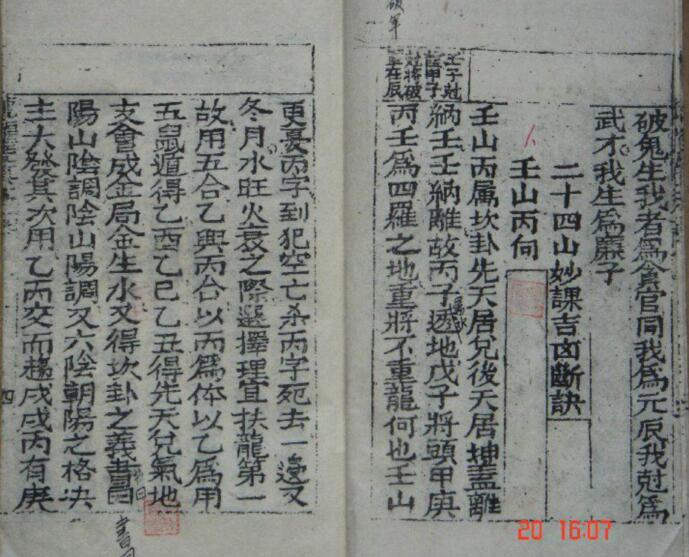 破鬼生我者爲貪官同我爲元辰我尅爲
武才我生爲廉子
二十四山妙課吉凶斷訣
壬山丙向
壬山丙属坎卦先天居兌後天居坤蓋離
納壬壬納離故丙子透地戊子將頭甲庚
丙壬爲四羅之地重將不重龍何也壬山
壬子尅
甲子
尅將破
在辰
更憂丙字到犯空亡杀丙字死去一邊又
冬月水旺火衰之際選擇理宜扶龍第一
故用五合乙與丙合以丙爲体以乙爲用
五鼠遁得乙酉乙巳乙丑得先天兌氣地
支會成金局金生水又得坎卦之義書曰
陽山陰調陰山陽調又六陰朝陽之格决
主大發其次用乙丙交而趨戌戌丙有庚
四
20 16:07